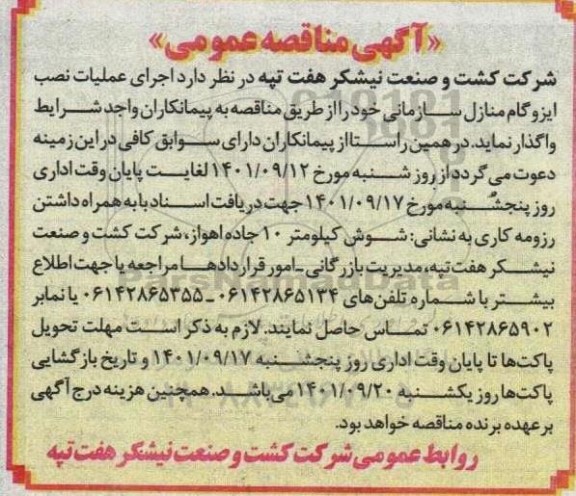 «آگهی مناقصه عمومی»
شرکت کشت و صنعت نیشکر هفت تپه در نظر دارد اجرای عملیات نصب
ایزوگام منازل سازمانی خود را از طریق مناقصه به پیمانکاران واجد شرایط
واگذار نماید. در همین راستا از پیمانکاران دارای سوابق کافی در این زمینه
دعوت می گردد از روز شنبه مورخ ۱۴۰۱/۰۹/۱۲ لغایت پایان وقت اداری
روز پنجشنبه مورخ ۱۴۰۱/۰۹/۱۷ جهت دریافت اسناد با به همراه داشتن
رزومه کاری به نشانی: شوش کیلومتر ۱۰ جاده اهواز، شرکت کشت و صنعت
نیشکر هفت تپه، مدیریت بازرگانی - امور قراردادها مراجعه یا جهت اطلاع
بیشتر با شماره تلفن های ۰۶۱۴۲۸۶۵۱۳۴ - ۰۶۱۴۲۸۶۵۳۵۵ یا نمابر
۰۶۱۴۲۸۶۵۹۰۲ تماس حاصل نمایند. لازم به ذکر است مهلت تحویل
پاکت ها تا پایان وقت اداری روز پنجشنبه ۱۴۰۱/۰۹/۱۷ و تاریخ بازگشایی
پاکت ها روز یکشنبه ۱۴۰۱/۰۹/۲۰ می باشد. همچنین هزینه درج آگهی
بر عهده برنده مناقصه خواهد بود.
روابط عمومی شرکت کشت و صنعت نیشکر هفت تپه